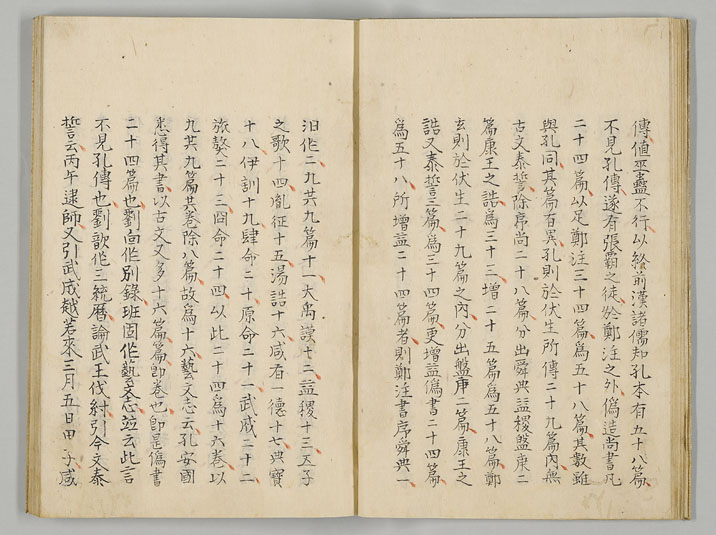 傳値巫蠱不行以終前漢諸儒知孔本有五十八篇
不見孔傳遂有張霸之徒於鄭注之外偽造尚書凡
二十四篇以足鄭注三十四篇為五十八篇其數雖
與孔同其篇有異孔則於伏生所傳二十九篇內無
古文泰誓除序尚二十八篇分出舜典益稷盤庚二
篇康王之誥為三十三增二十五篇為五十八篇鄭
玄則於伏生二十九篇之內分出盤庚二篇康王之
誥又泰誓三篇為三十四篇更增益偽書二十四篇
為五十八所增益二十四篇者則鄭注書序舜典一
汨作二九共九篇十一大禹謨十二益稷十三五子
之歌十四胤征十五湯誥十六咸有一德十七典寶
十八伊訓十九肆命二十原命二十一武成二十二
旅獒二十三冏命二十四以此二十四為十六卷以
九共九篇共卷除八篇故為十六藝文志云孔安國
悉得其書以古文又多十六篇篇即卷也即是偽書
二十四篇也劉向作別錄班固作藝文志並云此言
不見孔傳也劉歆作三統曆論武王伐紂引今文泰
誓云丙午逮師又引武成越若來三月五日甲子咸